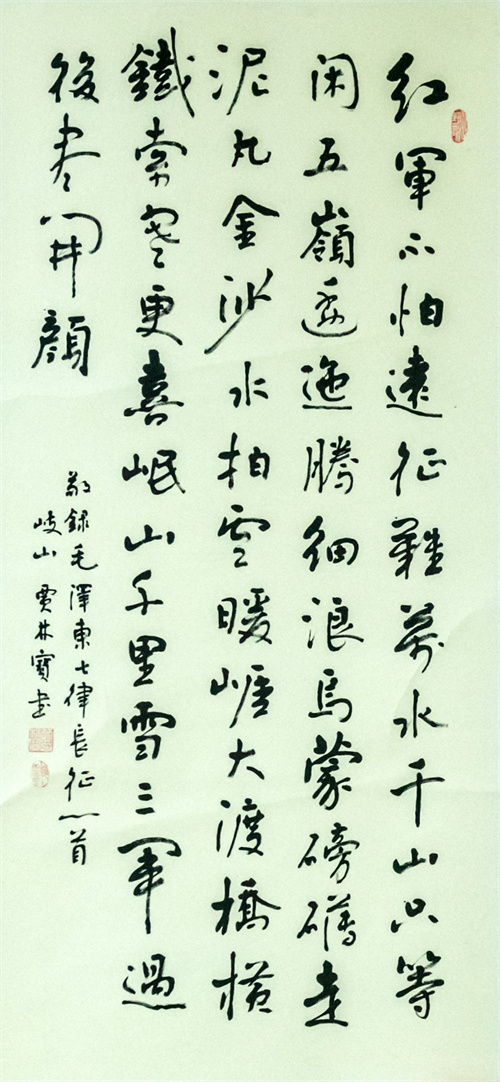 红軍不怕遠征難萬水千山只等
闲五嶺逶迤騰细浪烏蒙磅礴走
泥丸金沙水拍雲暖崕大渡橋横
鐵索寒更喜岷山千里雪三軍過
後尽開顔
敬録毛澤東七律長征一首
岐山 賈林寳書